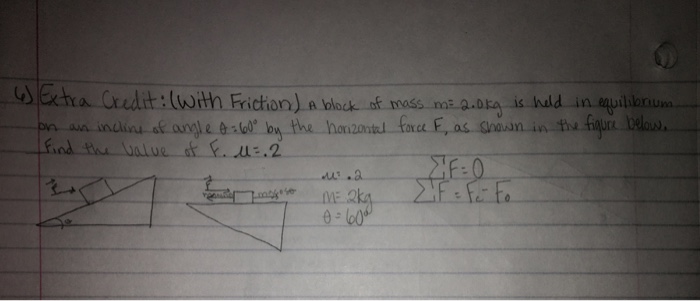 6) Extra Credit: (With Friction) A block of mass m= 2.0kg is held in equilibrium
on an incline of angle θ=60° by the horizontal force F, as shown in the figure below.
Find the value of F. μ=.2
μ= .2
m= 2kg
θ=60°
ΣF=0
F
F
θ